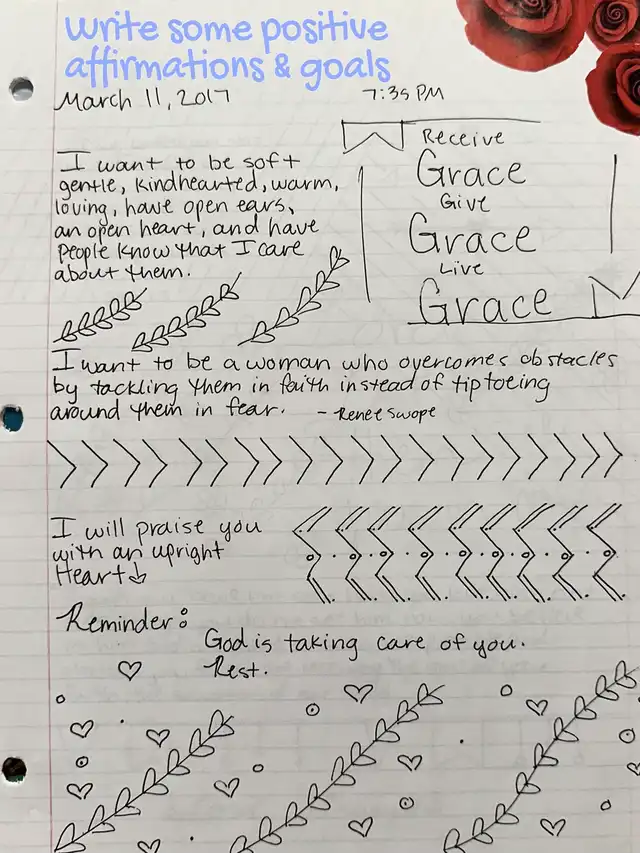 Write some positive
affirmations & goals
March 11, 2017
7:35 PM
I want to be soft
gentle, kindhearted, warm,
loving, have open ears,
an open heart, and have
people know that I care
about them.
Receive
Grace
Give
Grace
Live
Grace
I want to be a woman who overcomes obstacles
by tackling them in faith instead of tiptoeing
around them in fear. - Renee Swope
I will praise you
with an upright
Heart
Reminder:
God is taking care of you.
Rest.